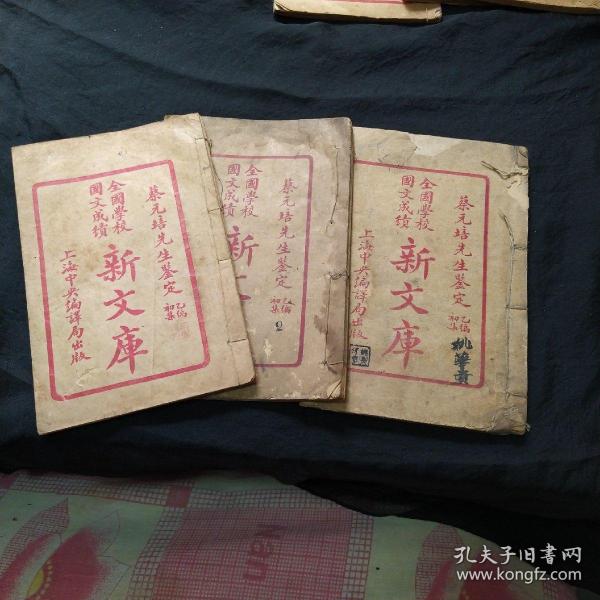 蔡元培先生鉴定
乙编
初集
全國學校
國文成績
新文庫
上海中央編譯局出版
蔡元培先生鉴定
乙编
初集
2
全國學校
國文成績
新文
蔡元培先生鉴定
乙编
初集
全國學校
國文成績
新文庫
上海中央編譯局出版
孔夫子旧书网
www.kongfz.com